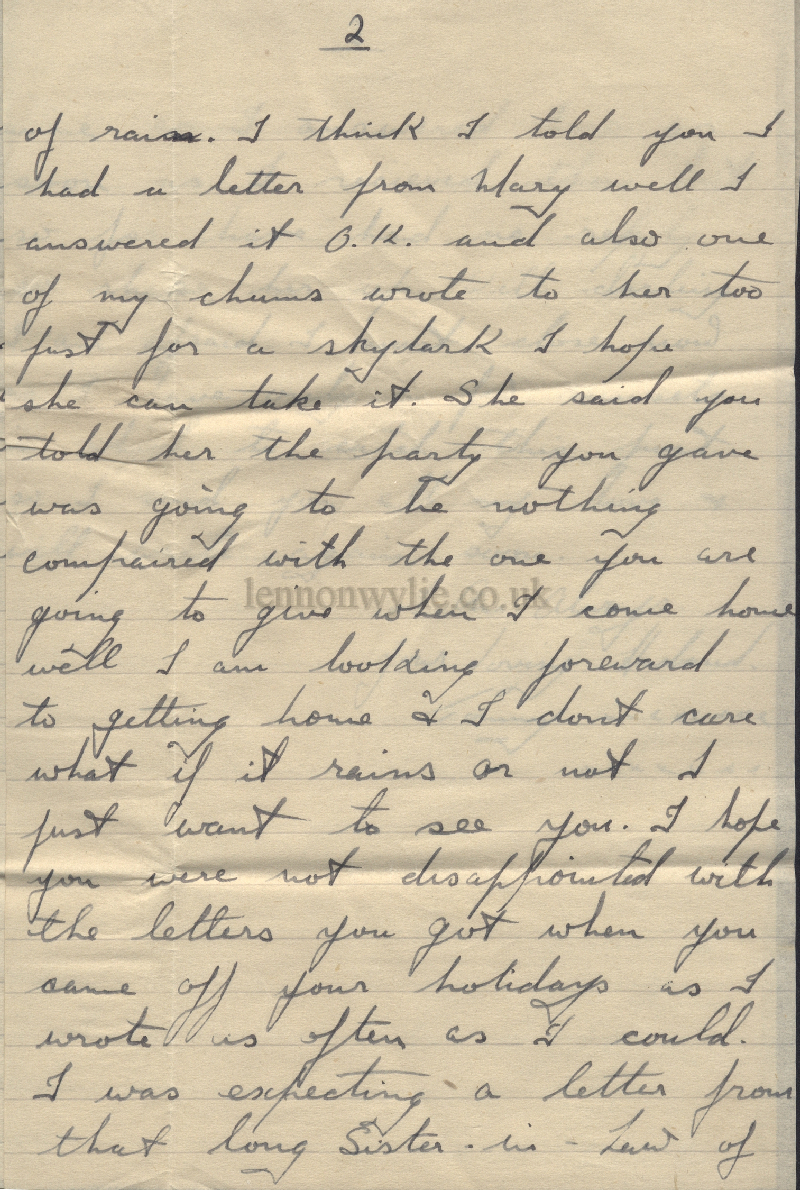 2
of rain. I think I told you I
had a letter from Mary well I
answered it O.K. and also one
of my chums wrote to her too
just for a skylark I hope
she can take it. She said you
told her the party you gave
was going to be nothing
compaired with the one you are
lennonwylie.co.uk
going to give when I come home
well I am looking foreward
to getting home & I dont care
what if it rains or not I
just want to see you. I hope
you were not disappointed with
the letters you got when you
came off your holidays as I
wrote as often as I could.
I was expecting a letter from
that long Sister-in-Law of